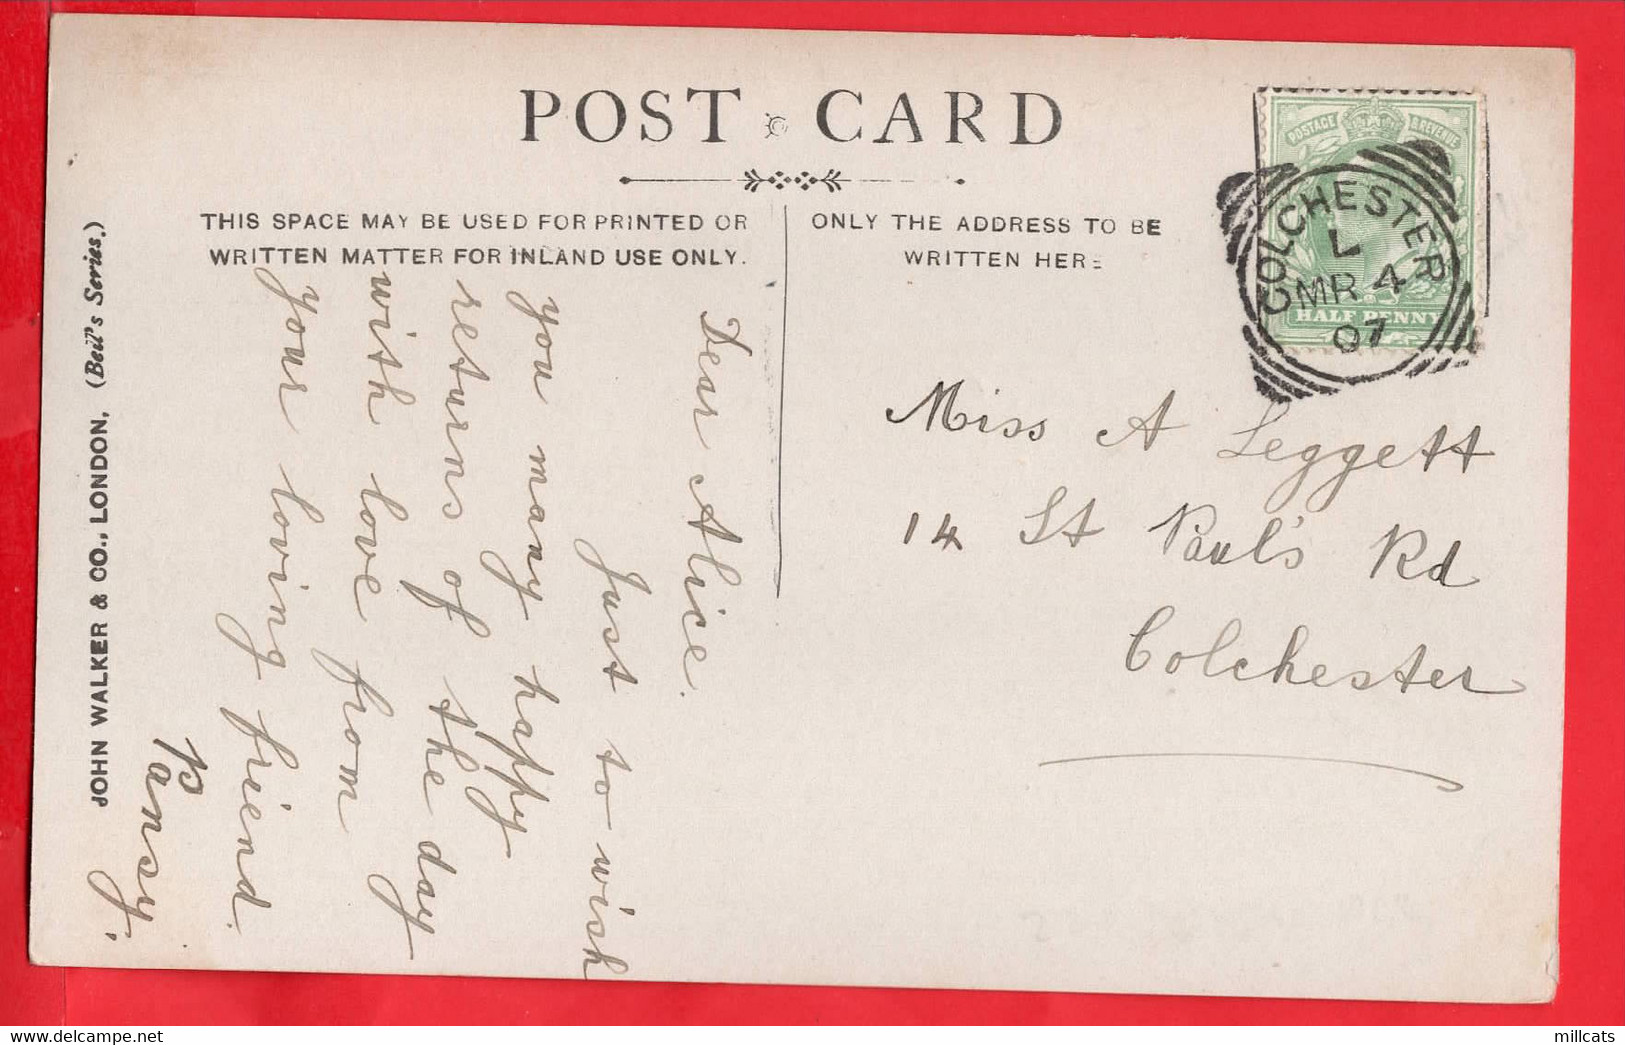 POST CARD
THIS SPACE MAY BE USED FOR PRINTED OR
WRITTEN MATTER FOR INLAND USE ONLY.
ONLY THE ADDRESS TO BE
WRITTEN HERE
POSTAGE & REVENUE
HALF PENNY
COLCHESTER
L
MR 4
07
Miss A Leggett
14 St Paul's Rd
Colchester
Dear Alice.
Just to wish
you many happy
returns of the day
with love from
your loving friend.
Pansy.
JOHN WALKER & CO., LONDON. (Bell's Series.)
millcats